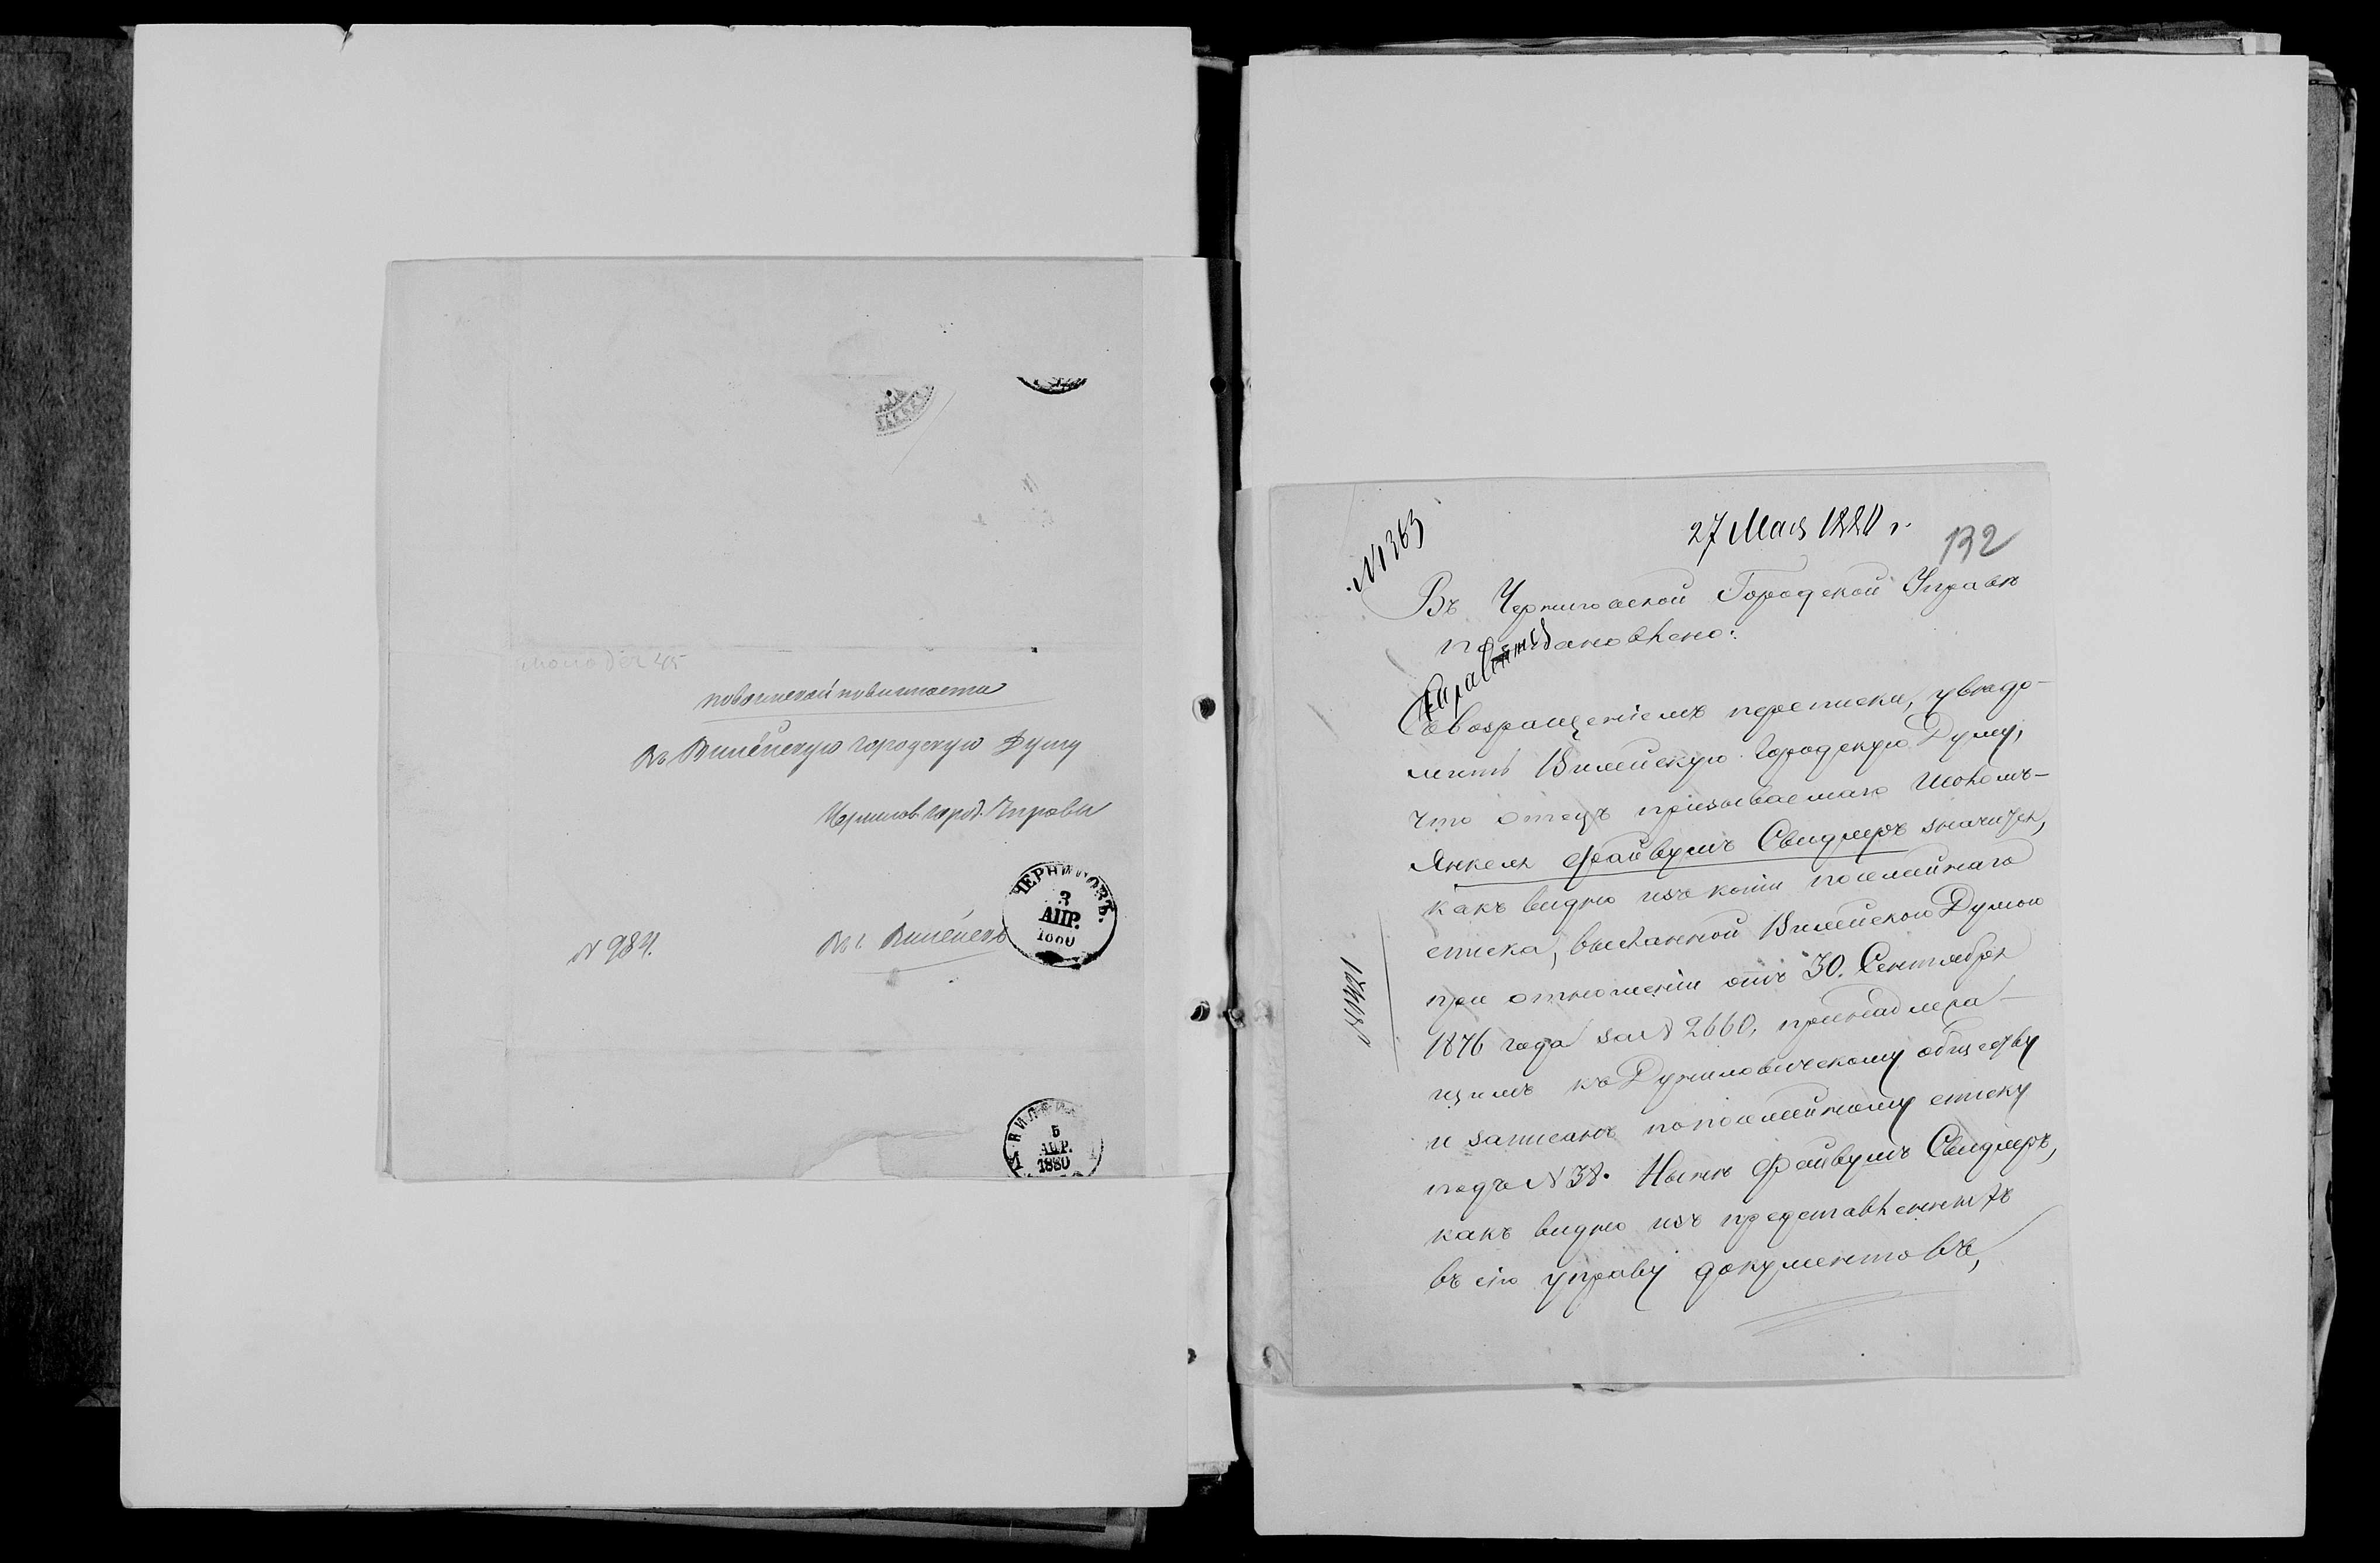 по воинской повинности
Въ Вилейскую городскую Думу
Чернигов. город. Управы
ЧЕРНИГОВЪ.
3
АПР.
1880
№ 984.
Въ г. Вилейскъ
5
АПР.
1880
27 Мая 1880 г.
132
№1363
Въ Черниговской Городской Управѣ
постановлено:
Съ возвращеніемъ переписки, увѣдо-
мить Вилейскую Городскую Думу,
что отецъ призываемаго
Янкеля Файвушъ Свидлеръ значится,
какъ видно изъ копіи посемейнаго
списка, высланной Вилейскою Думою
при отношеніи отъ 30. Сентября
1876 года за № 2660, принадлежа-
щимъ къ Дуниловическому обществу
и записанъ по посемейному списку
подъ № 38. Нынѣ Файвушъ Свидлеръ,
какъ видно изъ представленныхъ
въ сію управу документовъ,